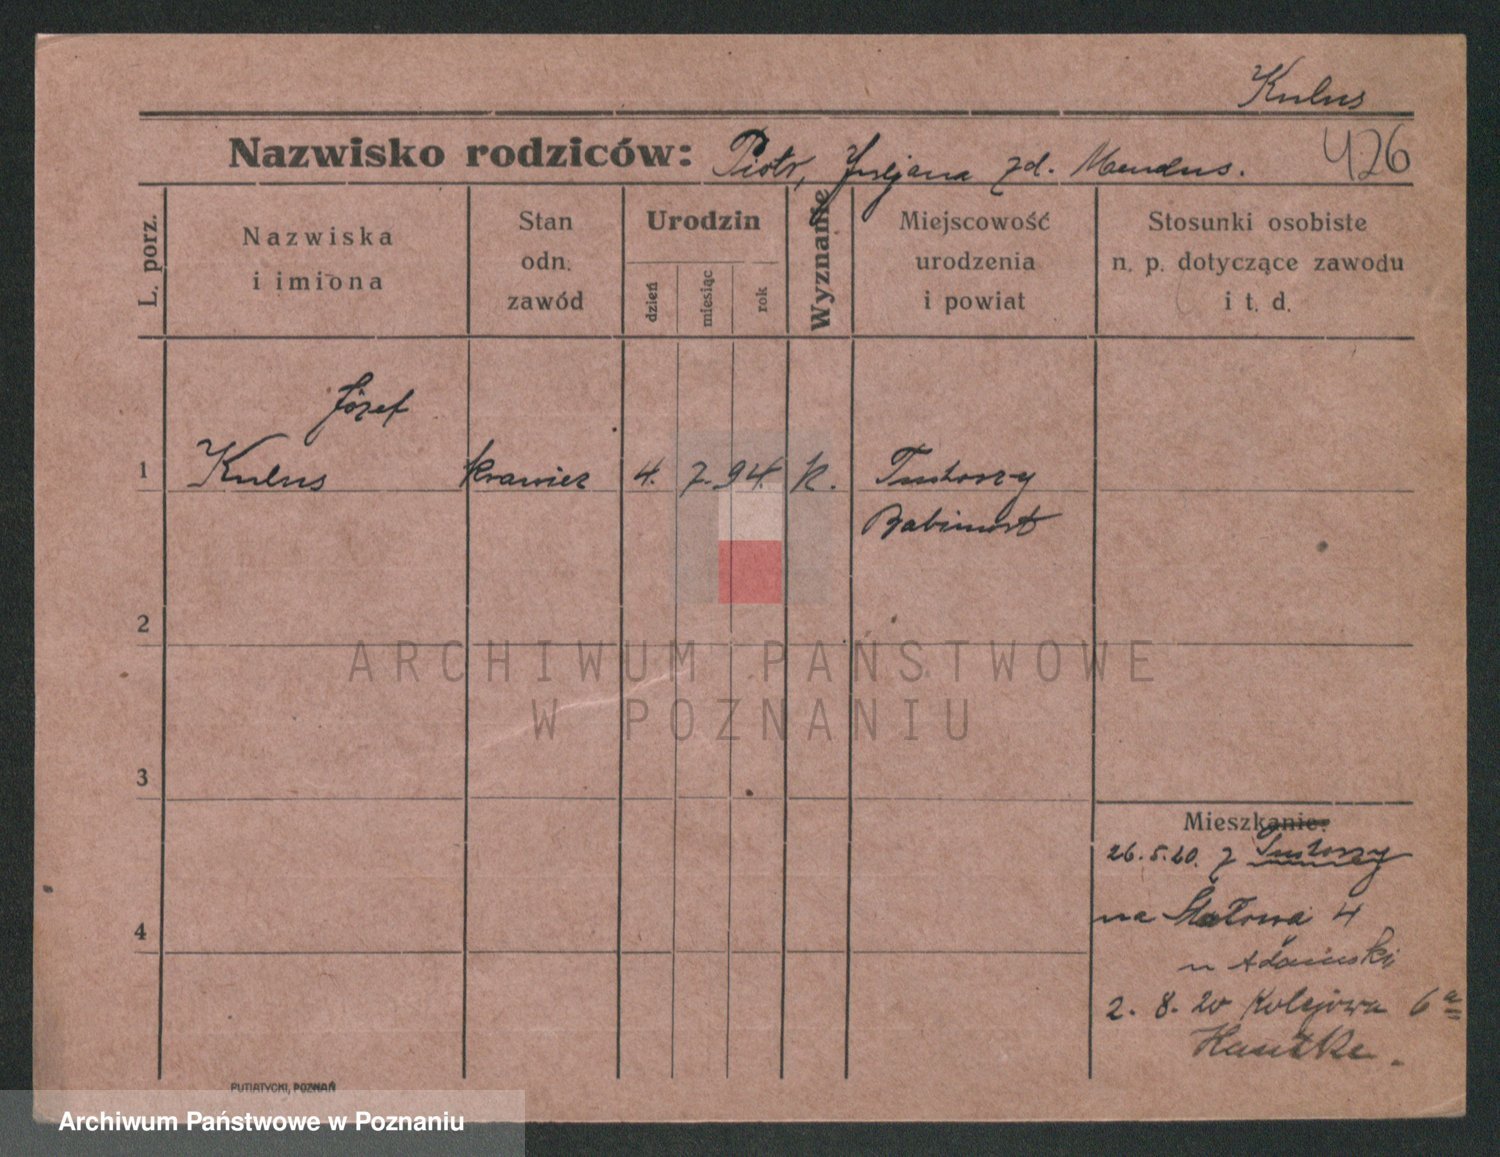 Kulus
Nazwisko rodziców: Piotr, Juljana zd. Mendus.
426
L. porz.
Nazwiska
i imiona
Stan
odn.
zawód
Urodzin
dzień
miesiąc
rok
Wyznanie
Miejscowość
urodzenia
i powiat
Stosunki osobiste
n. p. dotyczące zawodu
i t. d.
Józef
1 Kulus krawiec 4. 7. 94. k. Tuchorzy
Babimost
2
3
4
Mieszkanie:
26.5.20. z Tuchorzy
na 4
u Adamski
2. 8. 20 Kolejowa 6a
PUTIATYCKI, POZNAŃ
ARCHIWUM PAŃSTWOWE
W POZNANIU
Archiwum Państwowe w Poznaniu